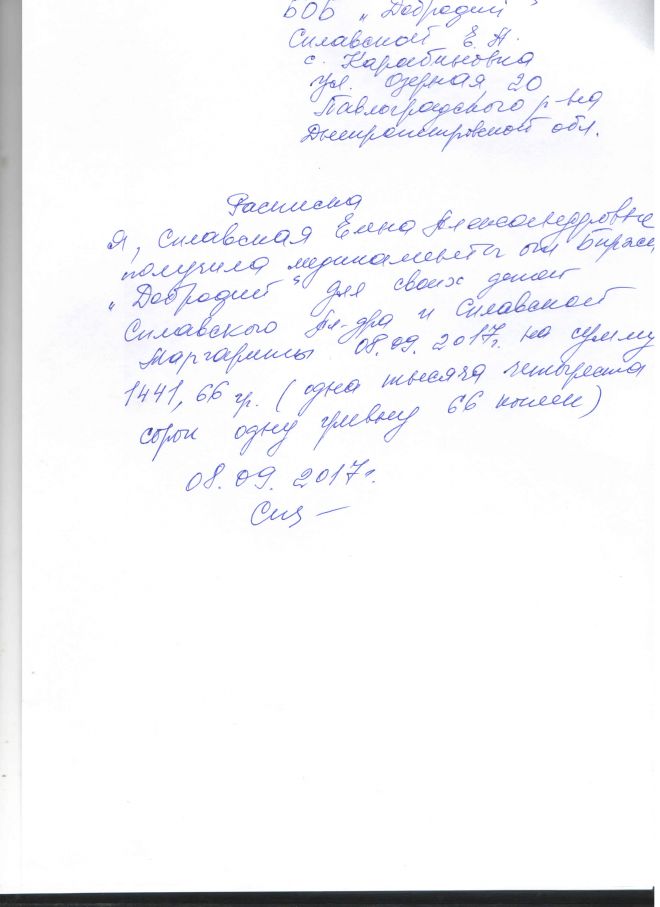 БОБ „Добродий"
Силавской Е. А.
с. Карабиновка
ул. Озерная 20
Павлоградского р-на
Днепропетровской обл.
Расписка
Я, Силавская Елена Александровна
получила медикаменты от Биржи
„Добродий" для своих детей
Силавского Ал-дра и Силавской
Маргариты 08.09.2017г. на сумму
1441,66 гр. (одна тысяча четыреста
сорок одну гривну 66 копеек)
08.09.2017г.